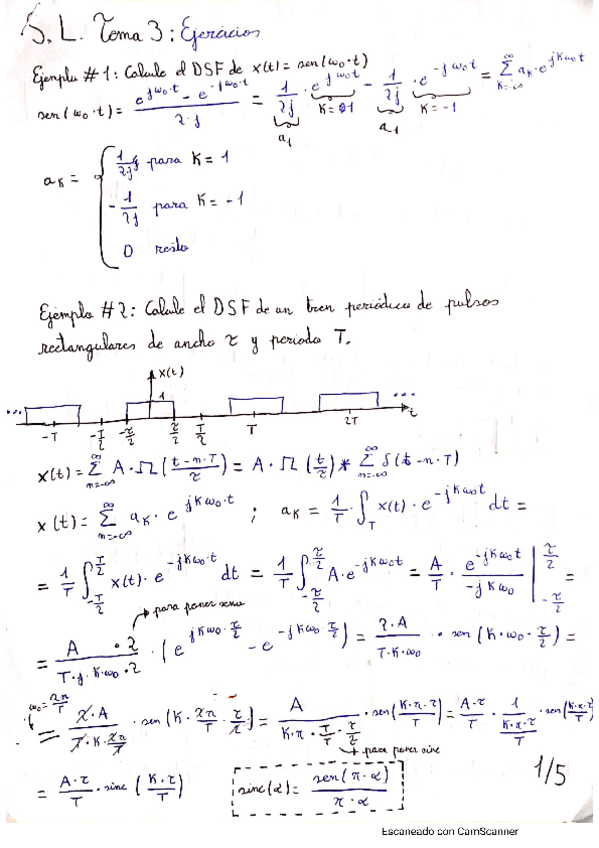 S. L. Tema 3: Ejercicios
Ejemplo #1: Calcule el DSF de x(t) = sen(ω₀·t)
sen(ω₀·t) = (e^{jω₀·t} - e^{-jω₀·t}) / (2·j) = 1/2j · e^{jω₀t} - 1/2j · e^{-jω₀t} = Σ_{k=-∞}^{∞} a_k · e^{jkω₀t}
a₁ K=1 a₁ K=-1
a_k = { 1/2j para K=1
-1/2j para K=-1
0 resto
Ejemplo #2: Calcule el DSF de un tren periódico de pulsos
rectangulares de ancho τ y periodo T.
x(t)
... 1 ...
-T -T/2 -τ/2 τ/2 T/2 T 2T t
x(t) = Σ_{n=-∞}^{∞} A·Π((t-n·T)/τ) = A·Π(t/τ) * Σ_{n=-∞}^{∞} δ(t-n·T)
x(t) = Σ_{n=-∞}^{∞} a_k · e^{jkω₀·t} ; a_k = 1/T · ∫_T x(t) · e^{-jkω₀t} dt =
= 1/T ∫_{-T/2}^{T/2} x(t) · e^{-jkω₀·t} dt = 1/T ∫_{-τ/2}^{τ/2} A·e^{-jkω₀t} = A/T · e^{-jkω₀t} / (-jkω₀) |_{-τ/2}^{τ/2} =
para poner seno
= A·2 / (T·j·k·ω₀·2) · (e^{jkω₀·τ/2} - e^{-jkω₀·τ/2}) = 2·A / (T·k·ω₀) · sen(k·ω₀·τ/2) =
ω₀ = 2π/T
= 2·A / (T·k·2π/T) · sen(k·2π/T · τ/2) = A / (k·π·T/T·τ/τ) · sen(k·π·τ/T) = A·τ/T · 1/(k·π·τ/T) · sen(k·π·τ/T)
para poner sinc
= A·τ/T · sinc(k·τ/T) sinc(α) = sen(π·α) / (π·α)
1/5
Escaneado con CamScanner